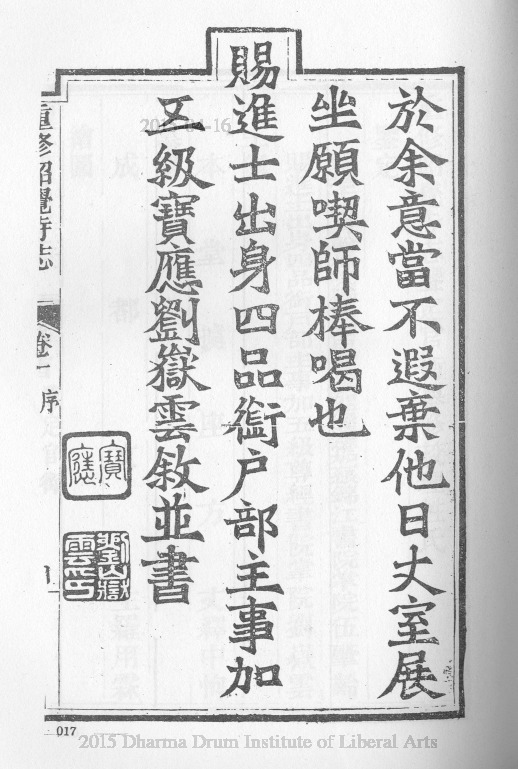 於余意當不遐棄他日丈室展
坐願喫師棒喝也
賜進士出身四品銜户部主事加
五級寶應劉嶽雲敘並書
寶應
劉嶽雲印
重修昭覺寺志
卷一
序
017
2015 Dharma Drum Institute of Liberal Arts